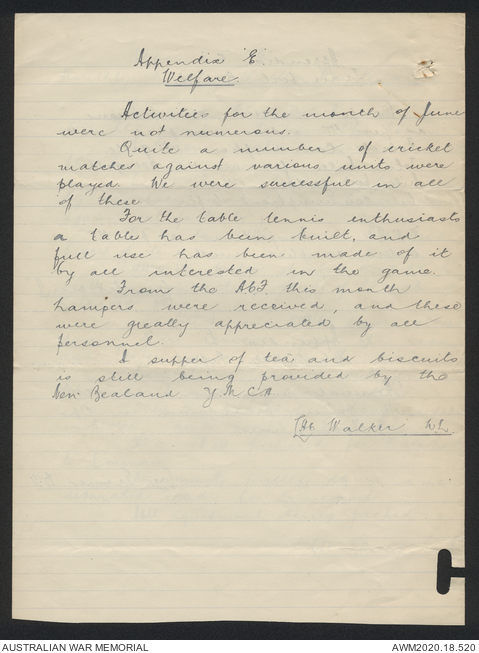 Appendix 'E'
Welfare.
Activities for the month of June
were not numerous.
Quite a number of cricket
matches against various units were
played. We were successful in all
of these
For the table tennis enthusiasts
a table has been built, and
full use has been made of it
by all interested in the game.
From the ACF this month
hampers were received, and these
were greatly appreciated by all
personnel.
A supper of tea and biscuits
is still being provided by the
New Zealand Y M C A
Walker
AUSTRALIAN WAR MEMORIAL
AWM2020.18.520